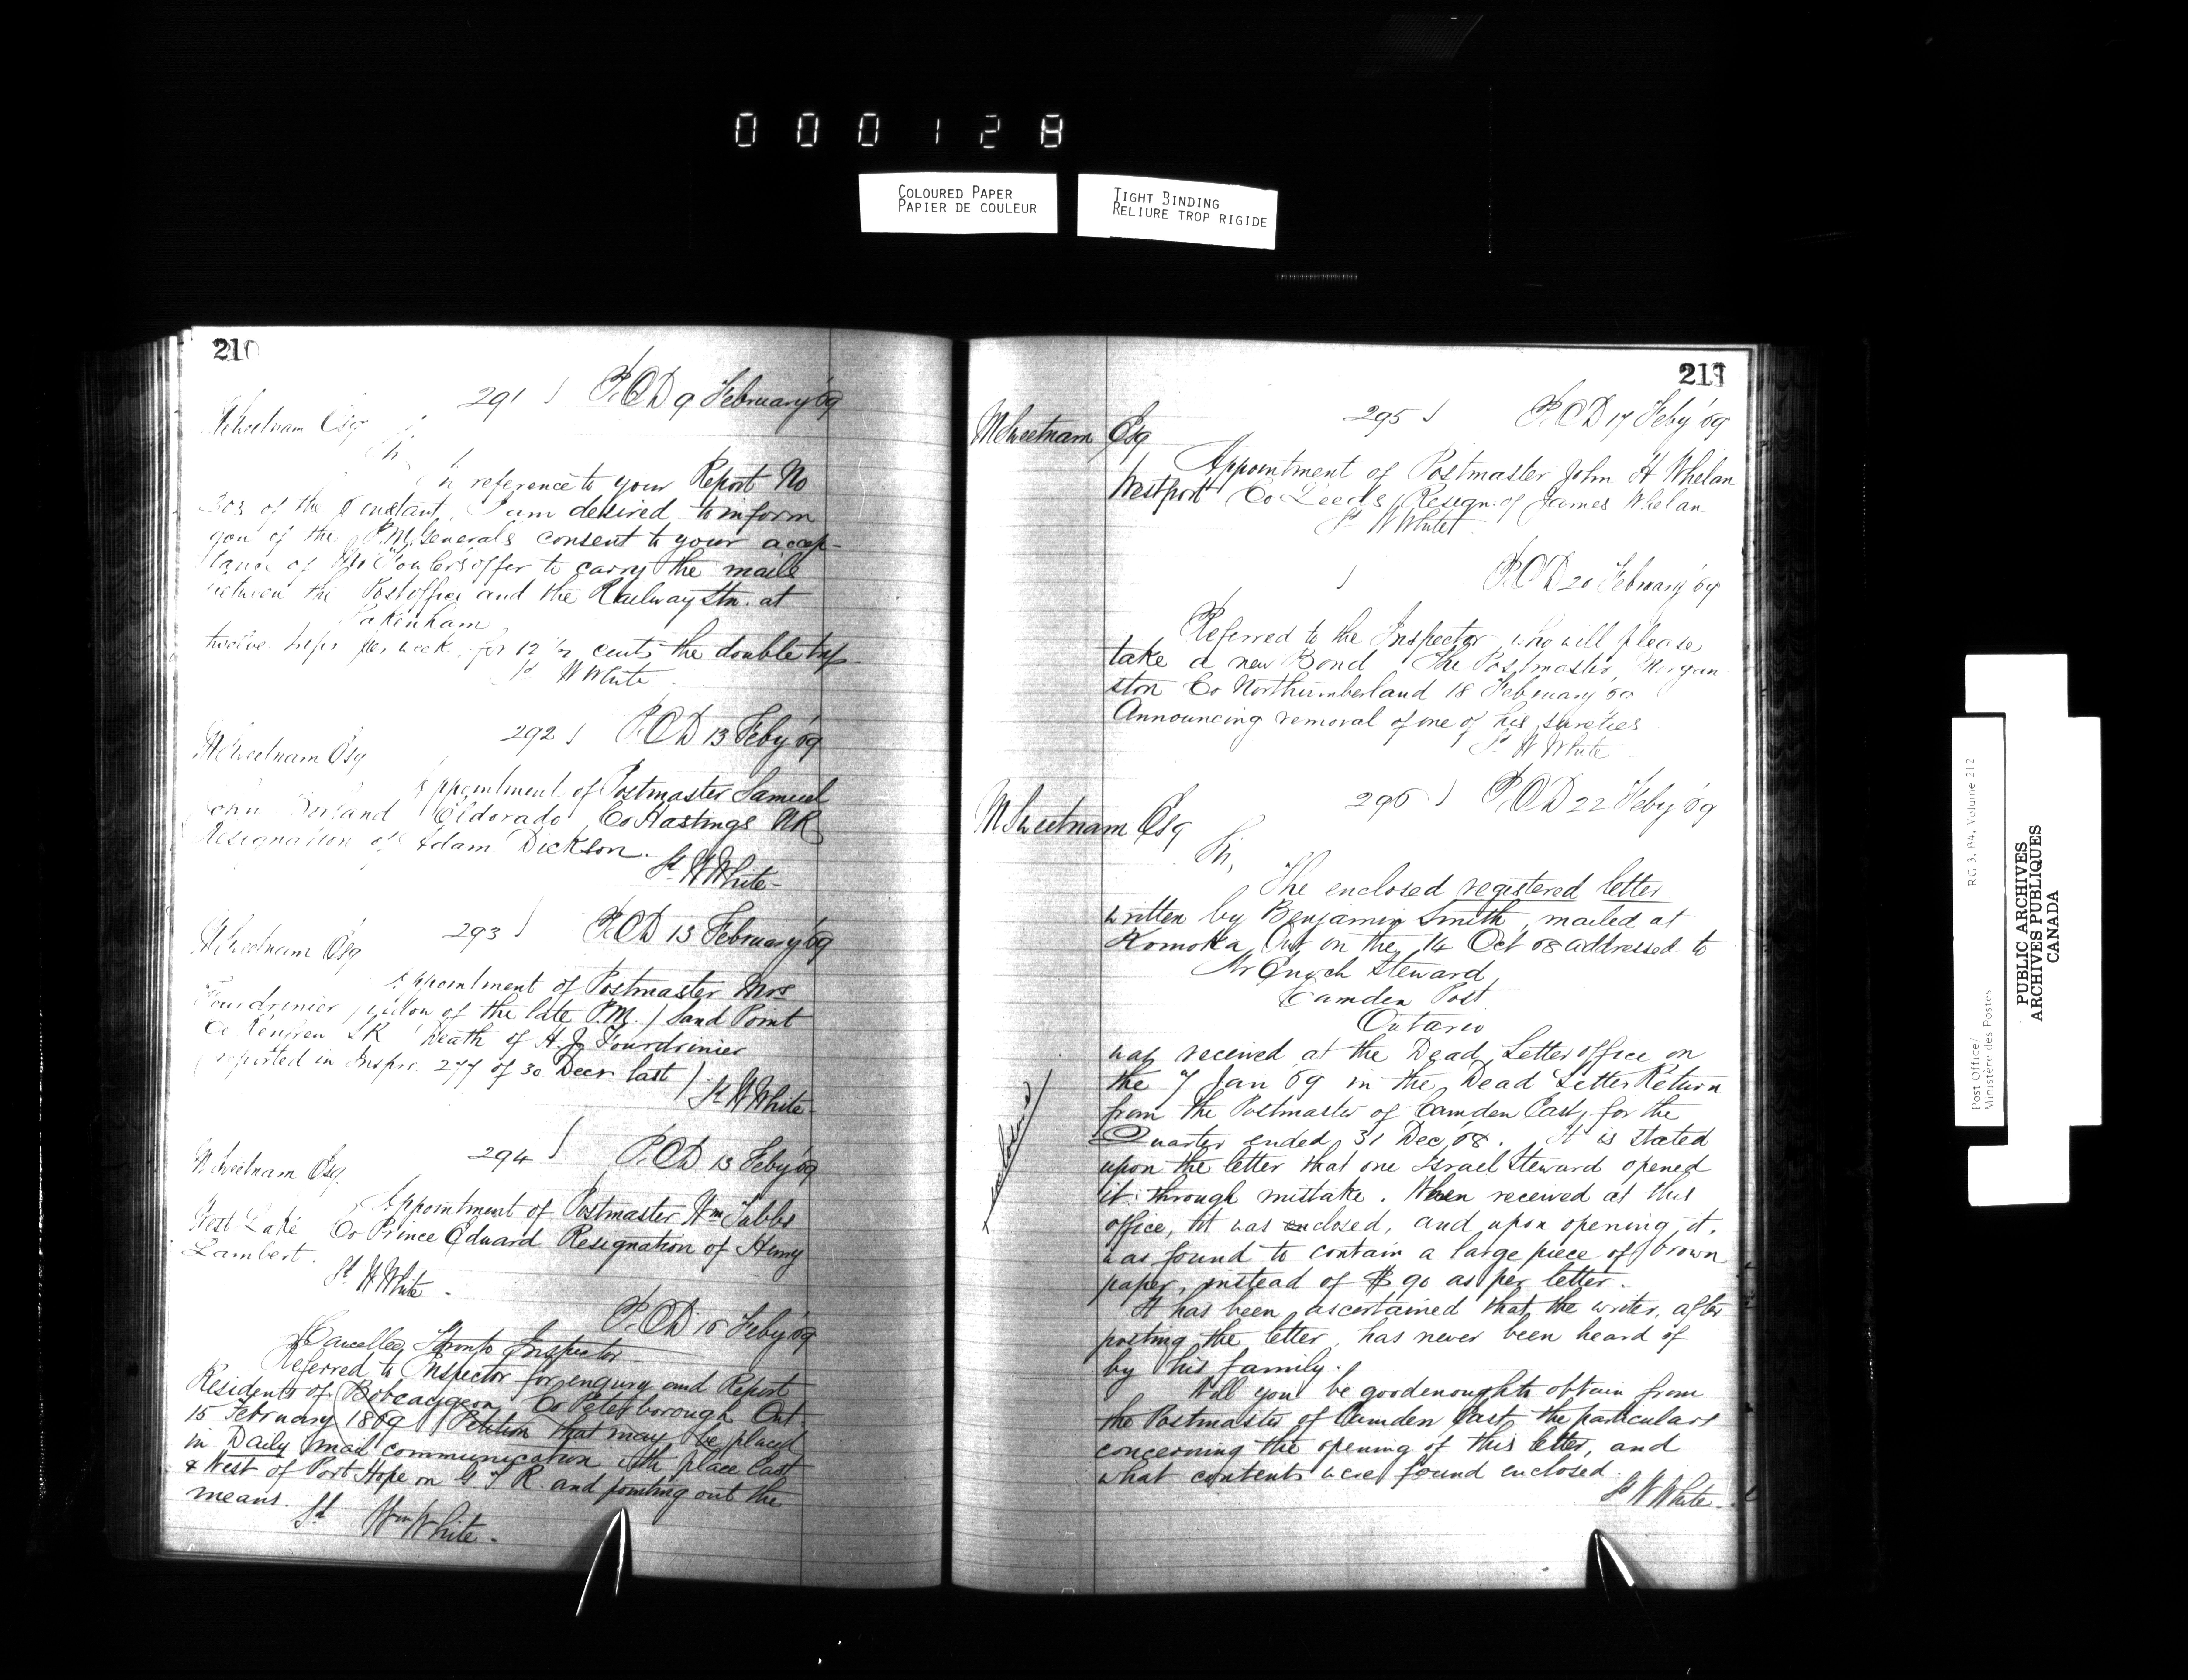 000128
COLOURED PAPER
PAPIER DE COULEUR
TIGHT BINDING
RELIURE TROP RIGIDE
210
291 P.O.D 9 February '69
M Sweetnam Esq
Sir
In reference to your Report No
303 of the instant, I am desired to inform
you of the P.M. Generals consent to your accep-
tance of Mr offer to carry the mails
between the Post office and the Railway Stn. at
Pakenham
twelve trips per week, for 12 1/2 cents the double trip
Sd W White
292 P.O.D 13 Feby '69
M Sweetnam Esq
Appointment of Postmaster Samuel
John Eldorado Co Hastings NR
Resignation of Adam Dickson.
Sd W White -
293 P.O.D 13 February '69
M Sweetnam Esq
Appointment of Postmaster Mrs
Fourdrinier widow of the late P.M. / Sand Point
Co Renfrew SR Death of H.J. Fourdrinier
(reported in Inspr. 277 of 30 Decr last)
Sd W White -
294 P.O.D 13 Feby '69
M Sweetnam Esq.
Appointment of Postmaster Wm Tubbs
West Lake Co Prince Edward Resignation of Henry
Lambert.
Sd W White -
P.O.D 16 Feby '69
Cancelled Toronto Inspector
Referred to Inspector for enquiry and Report
Residents of Bobcaygeon, Co Peterborough Ont.
15 February 1869 Petition that may be placed
in Daily mail communication with place East
& West of Port Hope on G.T.R. and pointing out the
means. Sd Wm White -
211
295 P.O.D 17 Feby '69
M Sweetnam Esq
Appointment of Postmaster John H Whelan
Westport Co Leeds, Resign: of James Whelan
Sd W White
P.O.D 20 February '69
Referred to the Inspector, who will please
take a new Bond The Postmaster, Morgan
ston Co Northumberland 18 February 69
Announcing removal of one of his sureties
Sd W White
296 P.O.D 22 Feby '69
M Sweetnam Esq
Sir,
The enclosed registered letter
written by Benjamin Smith, mailed at
Komoka, Ont on the 14 Oct '68 addressed to
Mr Enoch Steward,
Camden Post
Ontario
was received at the Dead Letter office on
the 7 Jan 69 in the Dead Letter Return
from the Postmaster of Camden East, for the
Quarter ended 31 Dec '68. It is stated
upon the letter that one Israel Steward opened
it through mistake. When received at this
office, it was enclosed, and upon opening it,
was found to contain a large piece of brown
paper, instead of $90 as per letter.
It has been ascertained that the writer, after
posting the letter, has never been heard of
by his family.
Will you be good enough to obtain from
the Postmaster of Camden East, the particulars
concerning the opening of this letter, and
what contents were found enclosed.
Sd W White
Post Office/
Ministère des Postes
RG 3, B4, Volume 212
PUBLIC ARCHIVES
ARCHIVES PUBLIQUES
CANADA